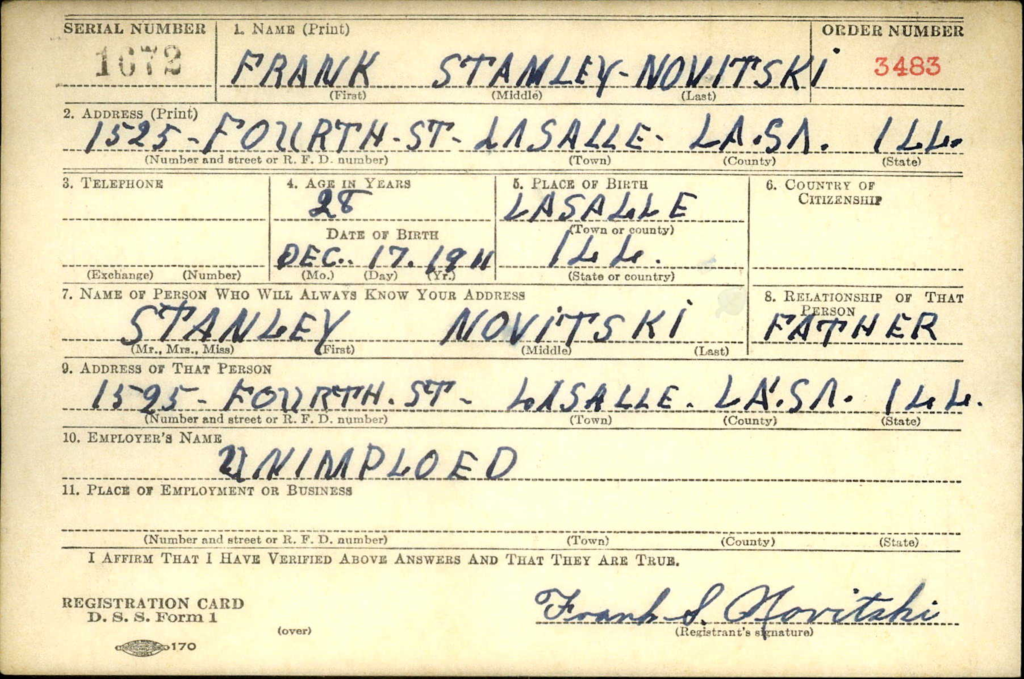 SERIAL NUMBER 1. NAME (Print) ORDER NUMBER
1672 FRANK STANLEY-NOVITSKI 3483
(First) (Middle) (Last)
2. ADDRESS (Print)
1525-FOURTH-ST-LASALLE- LA.SA. ILL.
(Number and street or R. F. D. number) (Town) (County) (State)
3. TELEPHONE 4. AGE IN YEARS 5. PLACE OF BIRTH 6. COUNTRY OF CITIZENSHIP
28 LASALLE
DATE OF BIRTH (Town or county)
DEC. 17. 1911 ILL.
(Exchange) (Number) (Mo.) (Day) (Yr.) (State or country)
7. NAME OF PERSON WHO WILL ALWAYS KNOW YOUR ADDRESS 8. RELATIONSHIP OF THAT PERSON
STANLEY NOVITSKI FATHER
(Mr., Mrs., Miss) (First) (Middle) (Last)
9. ADDRESS OF THAT PERSON
1525-FOURTH.ST- LASALLE. LA.SA. ILL.
(Number and street or R. F. D. number) (Town) (County) (State)
10. EMPLOYER'S NAME
UNIMPLOED
11. PLACE OF EMPLOYMENT OR BUSINESS
(Number and street or R. F. D. number) (Town) (County) (State)
I AFFIRM THAT I HAVE VERIFIED ABOVE ANSWERS AND THAT THEY ARE TRUE.
REGISTRATION CARD Frank S. Novitski
D. S. S. Form 1 (over) (Registrant's signature)
170